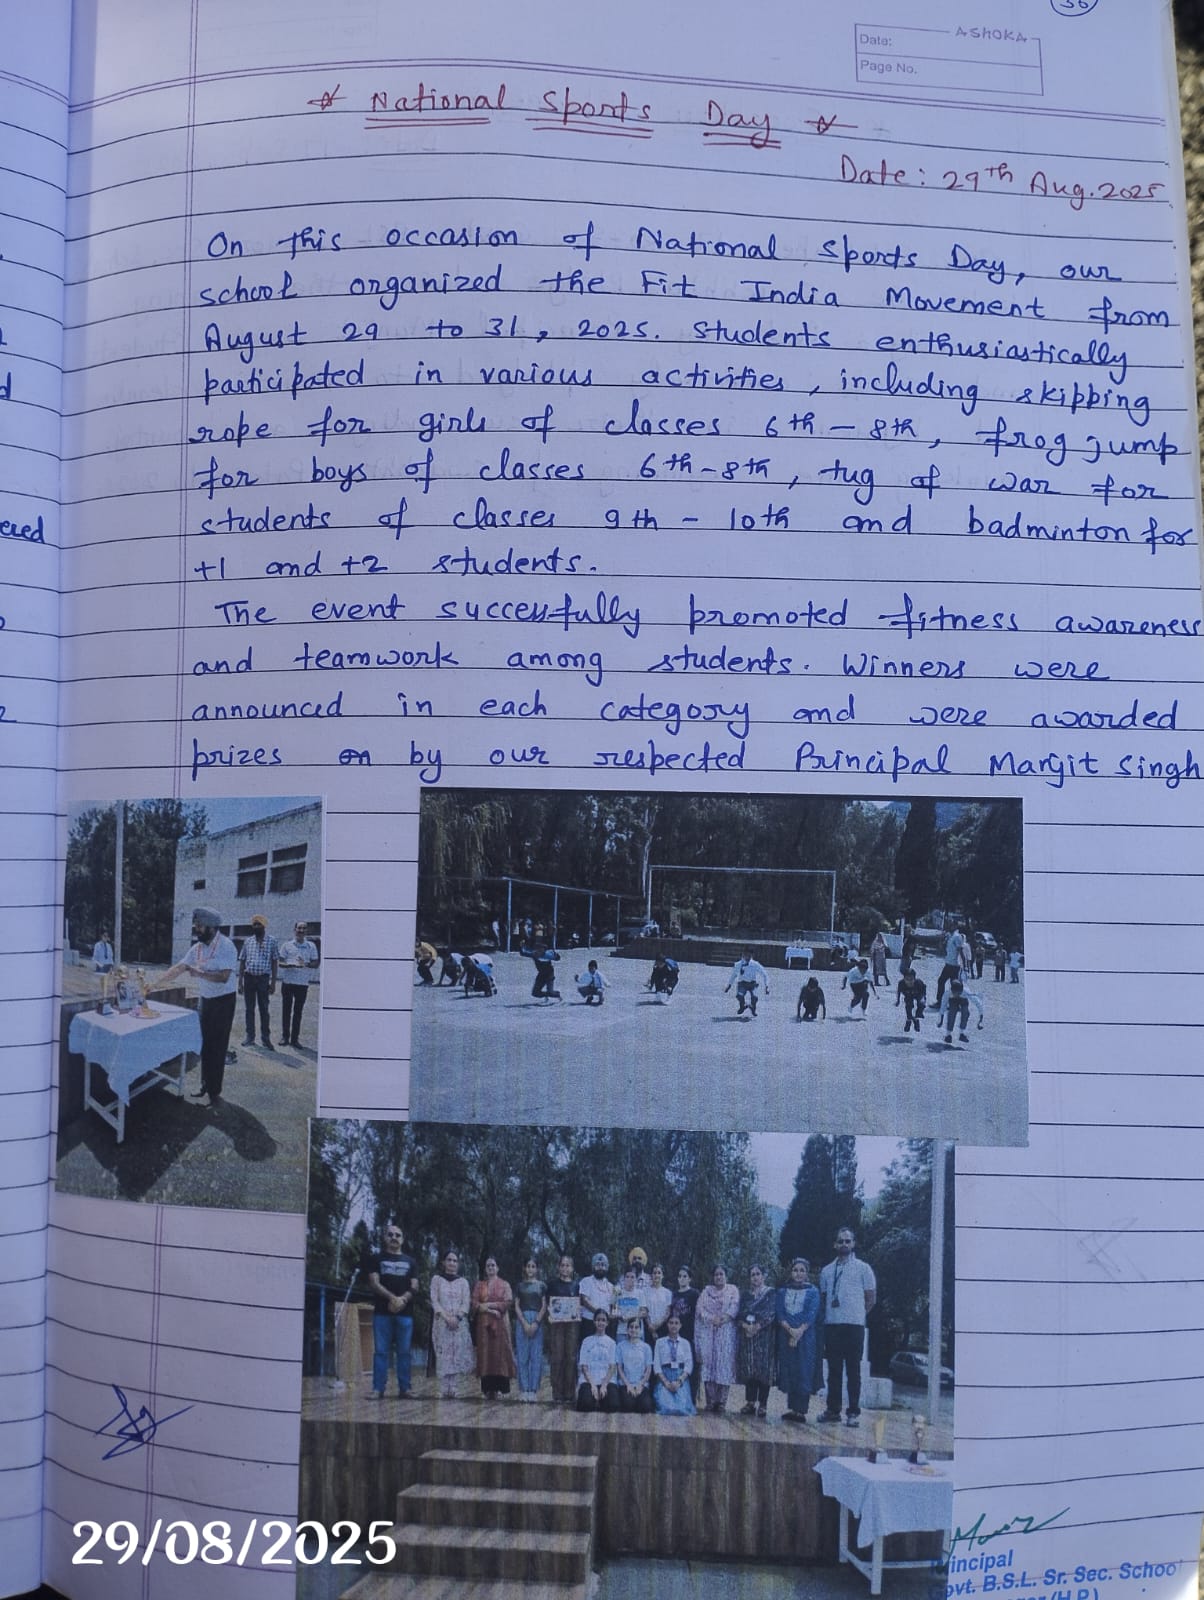 36
ASHOKA
Date:
Page No.
National Sports Day
Date: 29th Aug. 2025
On this occasion of National Sports Day, our
school organized the Fit India Movement from
August 29 to 31, 2025. Students enthusiastically
participated in various activities, including skipping
rope for girls of classes 6th - 8th, frog jump
for boys of classes 6th - 8th, tug of war for
students of classes 9th - 10th and badminton for
+1 and +2 students.
The event successfully promoted fitness awareness
and teamwork among students. Winners were
announced in each category and were awarded
prizes by our respected Principal Margit Singh
29/08/2025
Principal
Govt. B.S.L. Sr. Sec. School
(H.P.)